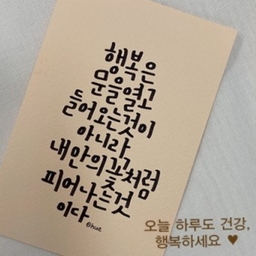 행복은
문을열고
들어오는것이
아니라
내안의꽃처럼
피어나는것
이다.
오늘 하루도 건강,
행복하세요 ♥